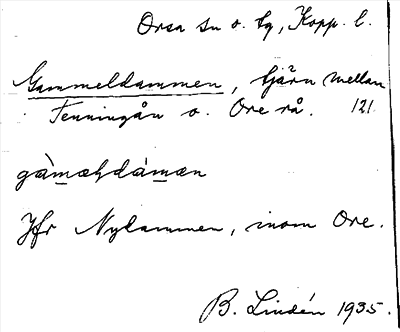 Orsa sn o. tg, Kopp. l.
Gammeldammen, tjärn mellan
Tenningån o. Ore rå. 121
gàmældámæn
Jfr Nydammen, inom Ore.
B. Lindén 1935.